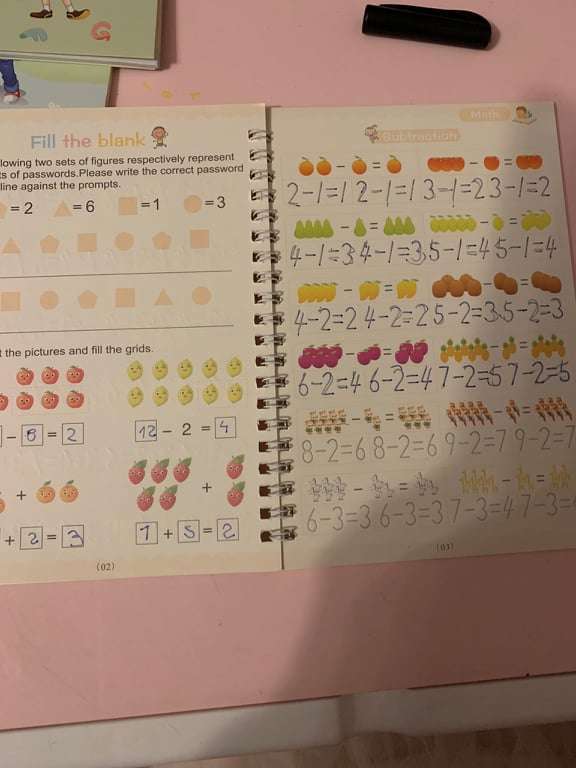 G
Fill the blank
lowing two sets of figures respectively represent
ts of passwords.Please write the correct password
line against the prompts.
=2 =6 =1 =3
t the pictures and fill the grids.
- 6 = 2
12 - 2 = 4
+
+ 2 = 3
1 + 5 = 2
(02)
Math
Subtraction
- = - =
2-1=1 2-1=1 3-1=2 3-1=2
- = - =
4-1=3 4-1=3 5-1=4 5-1=4
- = - =
4-2=2 4-2=2 5-2=3 5-2=3
- = - =
6-2=4 6-2=4 7-2=5 7-2=5
- = - =
8-2=6 8-2=6 9-2=7 9-2=7
- = - =
6-3=3 6-3=3 7-3=4 7-3=
(03)